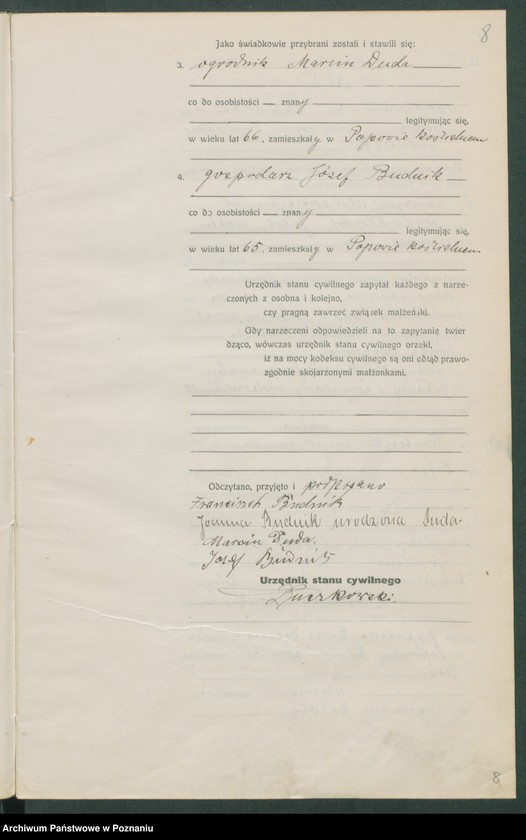 8
Jako świadkowie przybrani zostali i stawili się:
3. ogrodnik Marcin Duda
co do osobistości — znany
legitymując się,
w wieku lat 66, zamieszkały w Popowie kościelnem
4. gospodarz Józef Budnik
co do osobistości — znany
legitymując się,
w wieku lat 65, zamieszkały w Popowie kościelnem
Urzędnik stanu cywilnego zapytał każdego z narze-
czonych z osobna i kolejno,
czy pragną zawrzeć związek małżeński.
Gdy narzeczeni odpowiedzieli na to zapytanie twier
dząco, wówczas urzędnik stanu cywilnego orzekł,
iż na mocy kodeksu cywilnego są oni odtąd prawo-
zgodnie skojarzonymi małżonkami.
Odczytano, przyjęto i podpisano
Franciszek Budnik
Joanna Budnik urodzona Duda
Marcin Duda.
Józef Budnik
Urzędnik stanu cywilnego
8
Archiwum Państwowe w Poznaniu